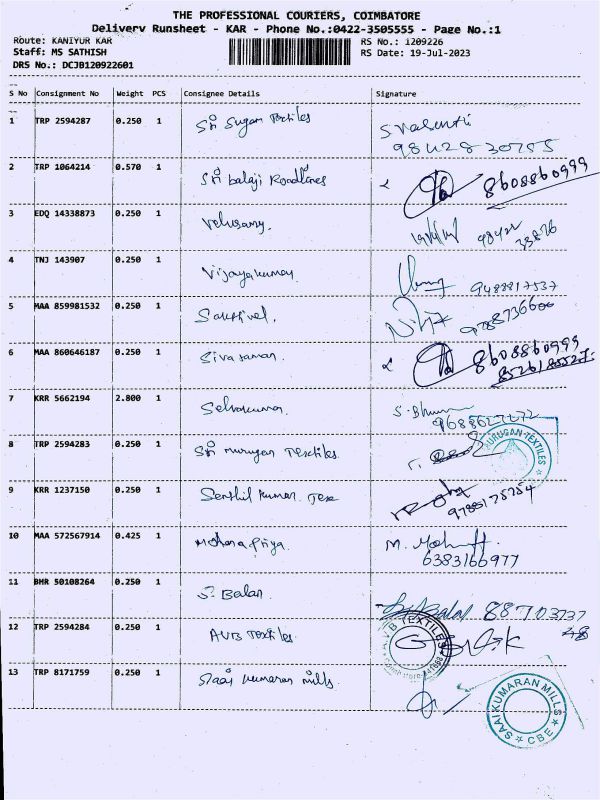 THE PROFESSIONAL COURIERS, COIMBATORE
Delivery Runsheet - KAR - Phone No.:0422-3505555 - Page No.:1
Route: KANIYUR KAR RS No.: i209226
Staff: MS SATHISH RS Date: 19-Jul-2023
DRS No.: DCJB120922601
S No Consignment No Weight PCS Consignee Details Signature
1 TRP 2594287 0.250 1 Sri Sugan Textiles S Vasanthi
98428 30755
2 TRP 1064214 0.570 1 Sri balaji Roadlines 8608860999
3 EDQ 14338873 0.250 1 Velusamy.
4 TNJ 143907 0.250 1 Vijayakumar 9488817537
5 MAA 859981532 0.250 1 Sakthivel.
6 MAA 860646187 0.250 1 Sivaraman. 8608860999
7 KRR 5662194 2.800 1 Selvakumar.
8 TRP 2594283 0.250 1 Sri murugan Textiles. MURUGAN TEXTILES
9 KRR 1237150 0.250 1 Senthil kumar Tex 9788175254
10 MAA 572567914 0.425 1 Mohana Priya. M. 
6383166977
11 BMR 50108264 0.250 1 S. Balan. 88703737
48
12 TRP 2594284 0.250 1 AVB Textiles A.V.B. TEXTILES
13 TRP 8171759 0.250 1 Saai kumaran mills. SAAI KUMARAN MILLS
CBE